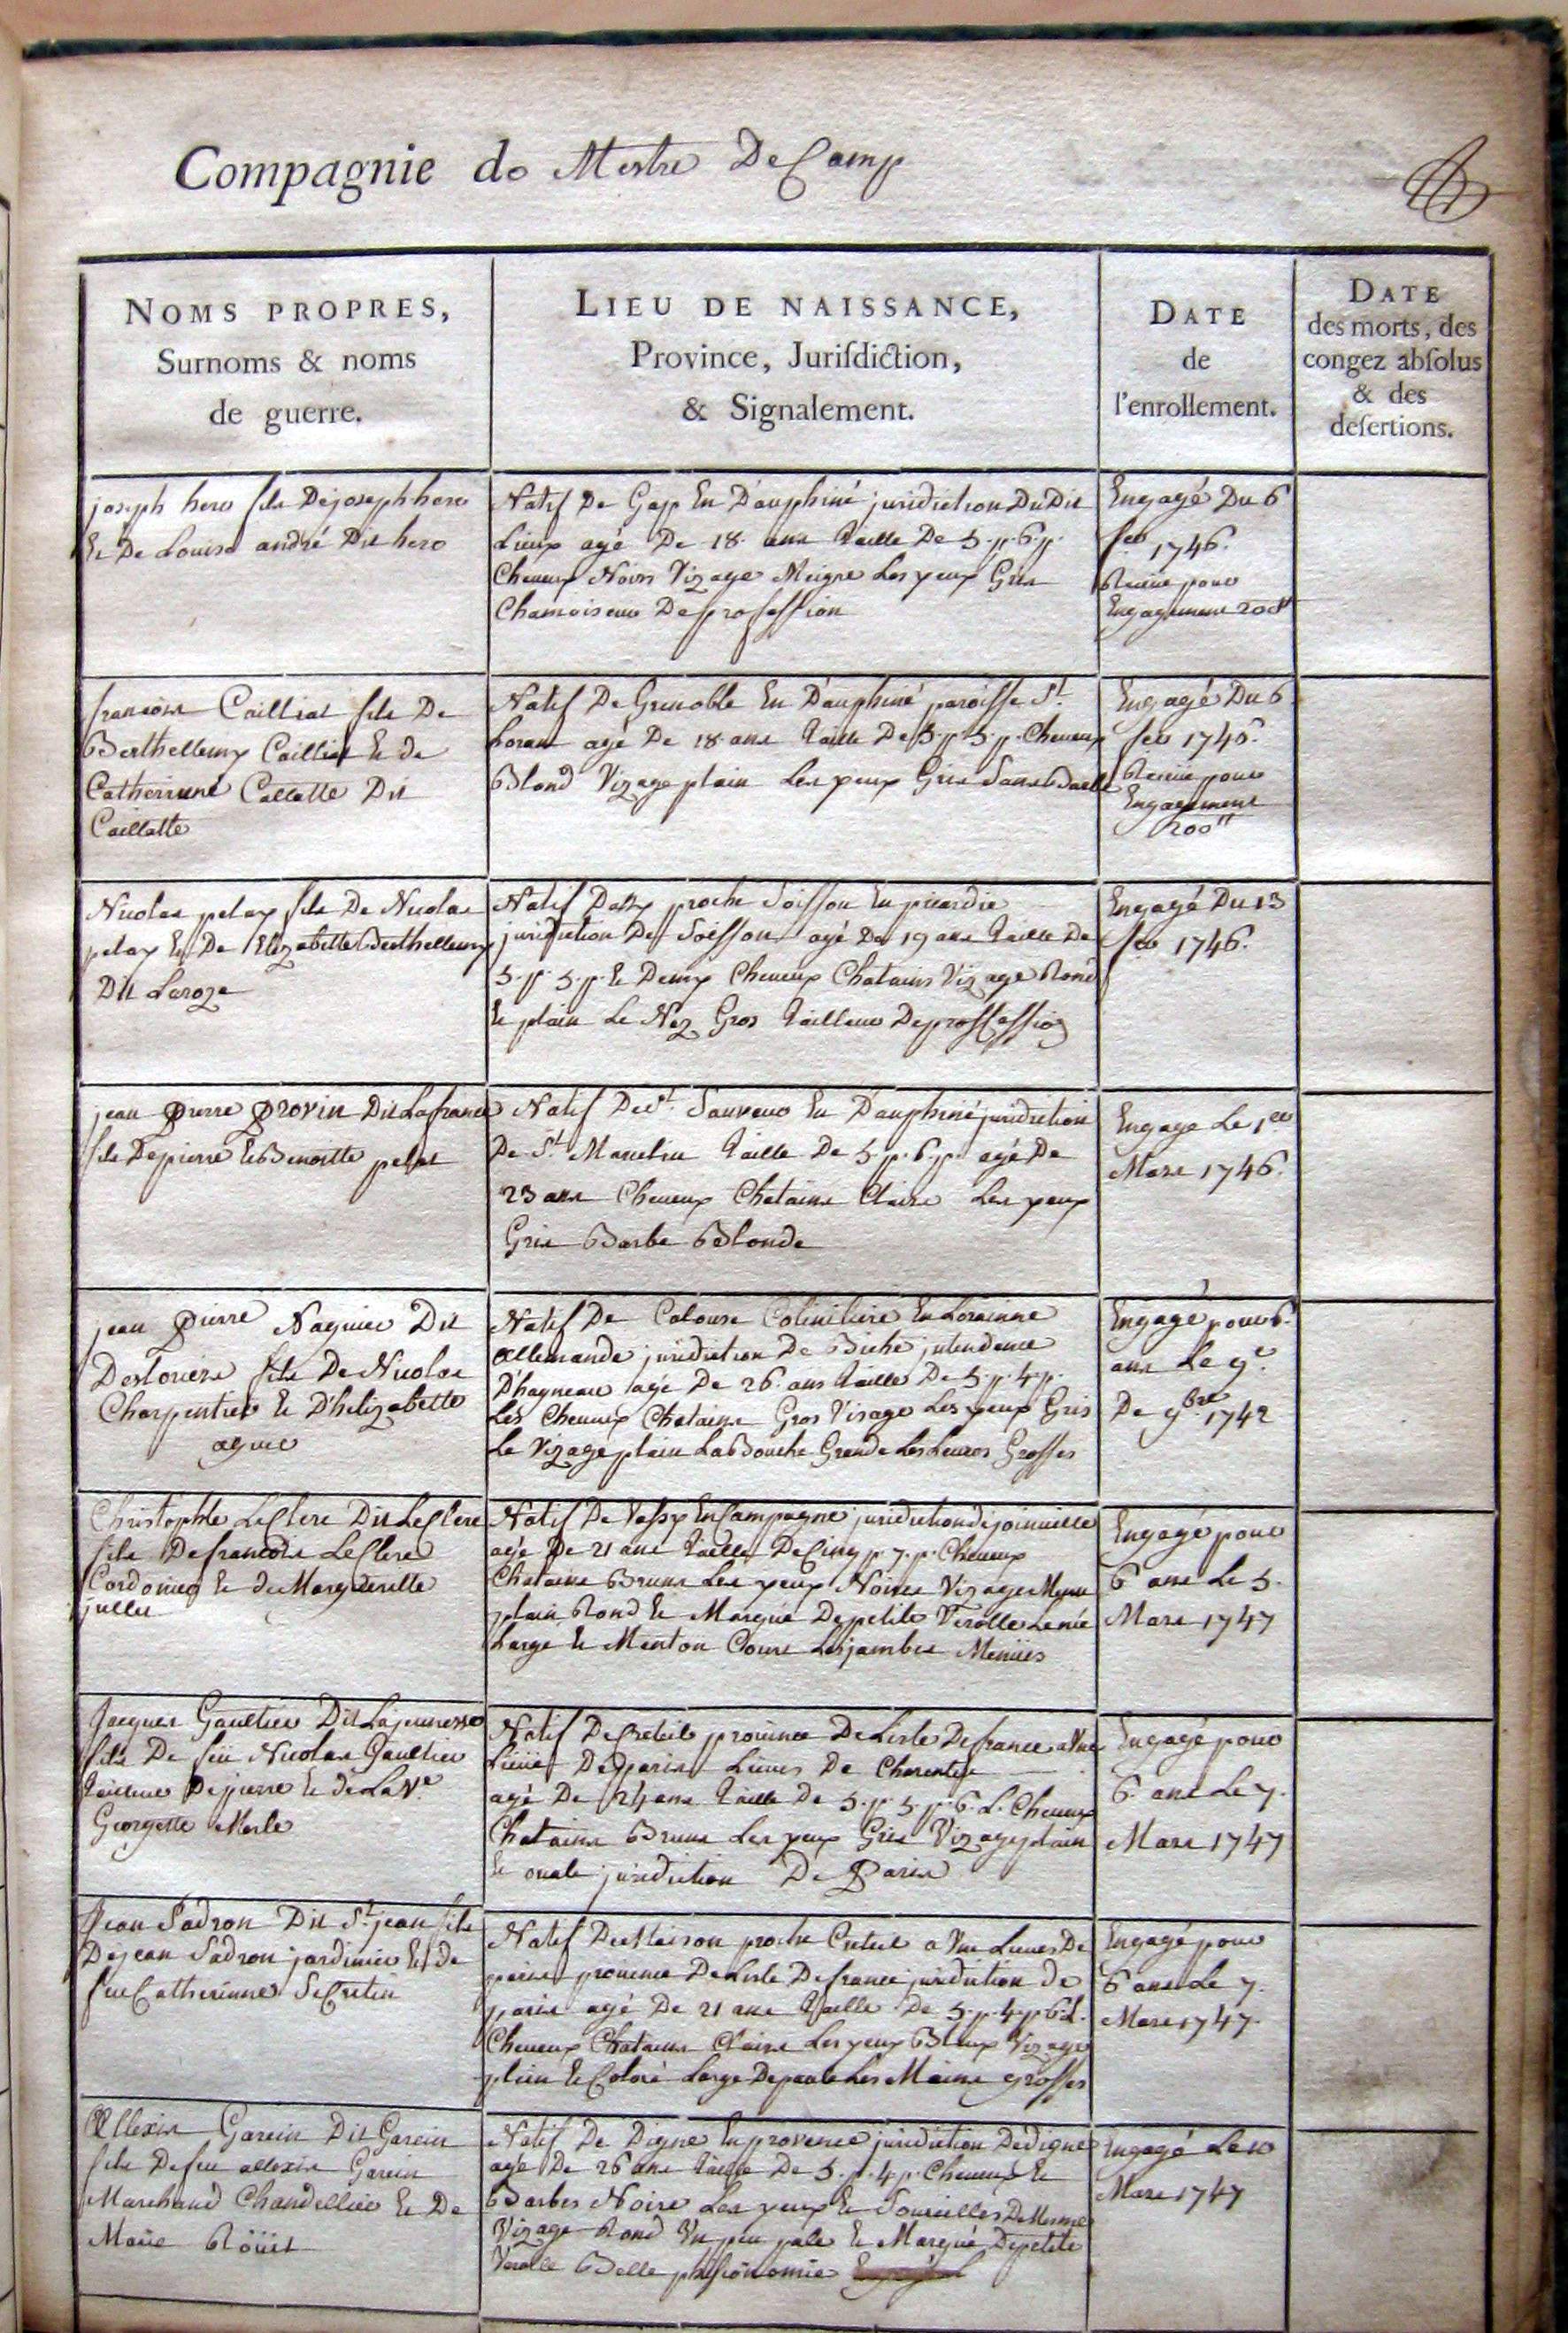 Compagnie de Mestre De Camp
NOMS PROPRES,
Surnoms & noms
de guerre.
LIEU DE NAISSANCE,
Province, Jurisdiction,
& Signalement.
DATE
de
l'enrollement.
DATE
des morts, des
congez absolus
& des
desertions.
joseph hero fils De joseph hero
Et De Louise andré Dit hero
Natif De Gap En Dauphiné juridiction Du Dit
Lieux agé De 18 ans Taille De 5. p. 6. p.
Cheveux Noirs Vizage Meigre Les yeux Gris
Chamoiseur De professsion
Engagé Du 6
feb 1746.
Engagement 200#
francois Cailliat fils De
Berthellemy Cailliat Et de
Catherinne Collatte Dit
Caillatte
Natif De Grenoble En Dauphiné paroisse St.
Loran agé De 18 ans Taille De 5. p. 5. p. Cheveux
Blond Vizage plain Les yeux Gris Sans
Engagé Du 6
feb 1746.
Engagement
200#
Nicolas pelay fils De Nicolas
pelay Et De Elizabette Berthellemy
Dit Laroze
Natif proche Soisson En picardie
juridiction De Soisson agé De 19 ans Taille De
5. p. 5. p. Et Demy Cheveux Chatains Vizage Rond
Et plain Le Nez Gros Tailleur De proffession
Engagé Du 13
feb 1746.
jean Pierre Provin Dit Lafrance
fils De pierre Et Benoitte
Natif De St. Sauveur En Dauphiné juridiction
De St. Marcelin Taille De 5. p. 6. p. agé De
23 ans Cheveux Chatains Clairs Les yeux
Gris Barbe Blonde
Engagé Le 1er
Mars 1746.
jean Pierre Naguier Dit
Desloriers fils De Nicolas
Charpentier Et D'helizabette
Natif De En Lorainne
allemande juridiction De Biche jntendence
D'hagneau agé De 26 ans Taille De 5. p. 4. p.
Les Cheveux Chatains Gros Visage Les yeux Gris
Le Vizage plain La Bouche Grande Les Levres Grosses
Engagé pour 6.
ans Le 9e.
De 9bre 1742
Christophle LeClerc Dit LeClerc
fils De francois LeClerc
Cordonier Et de Margueritte
jullei
Natif De Vassy En Campagne juridiction de joinville
agé De 21 ans Taille De Cinq p. 7. p. Cheveux
Chatains Bruns Les yeux Noires Vizage
plain Rond Et Marqué De petite Verolle Le née
Large Et Menton Court Les jambes Menües
Engagé pour
6 ans Le 5.
Mars 1747
Jacques Gaultier Dit Lajeunesse
fils De feü Nicolas Gaultier
Tailleur De pierre Et de La Ve.
Georgette Merle
Natif De Creteil province De Lisle De france a Une
Lieüe De paris Lieues De Charenton
agé De 24 ans Taille De 5. p. 5. p. 6. L. Cheveux
Chatains Bruns Les yeux Gris Vizage plain
Et ovale juridiction De Paris
Engagé pour
6. ans Le 7.
Mars 1747
Jean Sadron Dit St. jean fils
De jean Sadron jardinier Et de
feue Catherinne SeCretin
Natif De Maison proche Creteil a Une Lieues De
paris province De Lisle De france juridiction de
paris agé De 21 ans Taille De 5. p. 4. p. 6. L.
Cheveux Chatains Clairs Les yeux Bleux Vizage
plein Et Coloré Large Depaule Les Mains grosses
Engagé pour
6 ans Le 7.
Mars 1747.
Allexis Garcin Dit Garcin
fils De feu allexis Garcin
Marchand Chandellier Et De
Marie Roüit
Natif De Digne En provence juridiction De digne
agé De 26 ans Taille De 5. p. 4. p. Cheveux Et
Barbes Noire Les yeux Et Sourcilles De Mesme
Vizage Rond Un peu pale Et Marqué De petite
Verolle Belle phisionomie
Engagé Le 10
Mars 1747